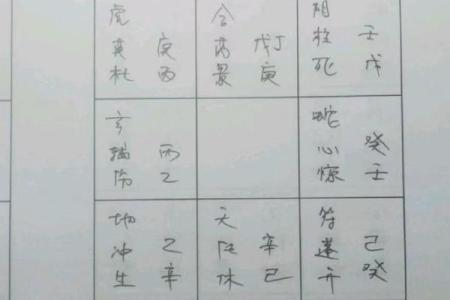 虎
英 庚
杜 丙
合
芮 戊丁
景 庚
阴
柱 壬
死 戊
玄
辅 丙
伤 乙
蛇
心 癸
惊 壬
地
冲 乙
生 辛
天
任 辛
休 己
符
蓬 己
开 癸